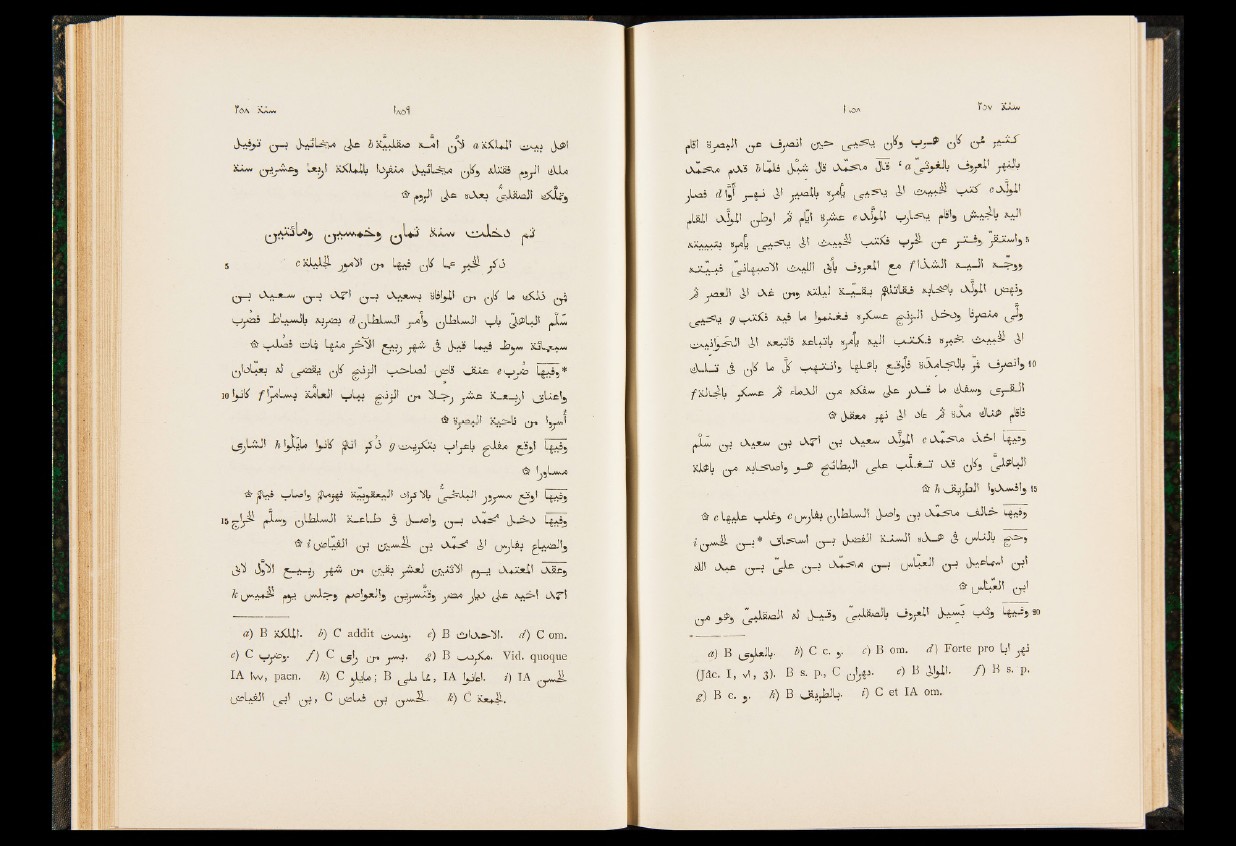 سنة ٢٥٧
١٨٥٨
كثير ممّن كان هرب وكان يحيى حين انصرف عن البصرة اقام
بالنهر المعروف بالغوثىّ a ' قال محمّد قال شبل فلمّا b قدم محمّد
المولّد c كتب الخبيث الى يحيى يأمره بالمصير الى نهر أوّا d فصار
اليه بالجيش واقام يحارب المولّد e عشرة ايّام ثم اوطن المولّد المقام
5 واستقرّ وفتر عن الحرب فكتب الخبيث الى يحيى يأمره بتبييته
ووجّه اليه الشذا f مع المعروف بأبى الليث الاصبهانىّ فبيّته
ونهض المولّد باصحابه فقاتلهم بقيّة ليلته ومن غد الى العصر ثم
ولّى منصرفا ودخل الزنج عسكره فغنموا ما فيه فكتب g يحيى
الى الخبيث بخبره فكتب اليه يأمره باتباعه فاتبعه الى الحوانيت
10 وانصرف فمرّ بالجامدة فأوقع باهلها وانتهب كلّ ما كان فى تلك
القرى وسفك ما قدر على سفكه من الدماء ثم عسكر بالجالة f
فاقام هناك مدّة ثم عاد الى نهر معقل ۞
وفيها اخذ محمّد c المولّد سعيد بن احمد بن سعيد بن سَلْم
الباهلىّ وكان قد تغلّب على البطائح هو واصحابه من باهلة
15 وافسدوا الطريف h ۞
وفيها خالف محمّد بن واصل السلطان بفارس c وغلب عليها c ۞
وحجّ بالناس فى هذه السنة الفضل بن اسحاق *بن الحسن i
ابن اسماعيل بن العبّاس بن محمّد بن علىّ بن عبد الله
ابن العبّاس ۞
20 وفيها وثب بَسيل المعروف بالصقلبىّ وقيل له الصقلبىّ وهو من
a) B بالعلوى. b) C c. و. c) B om. d) Forte pro نهر ابا
(Jâc. I, ٧٦, 3). B s. p., C نهران. e) B الموالى. f) B s. p.
g) B c. و. h) B بالطريف. i) C et IA om.
١٨٥٩
سنة ٢٥٨
اهل بيت المملكة a لأن أمّه صقلبيّة b على ميخائيل بن توفيل
ملك الروم فقتله وكان ميخائيل منفردا بالمملكة اربعا وعشرين سنة
وتملّك الصقلبىّ بعده على الروم ۞
ثم دخلت سنة ثمان وخمسين ومائتين
5 ذكر الخبر عما كان فيها من الامور الجليلة c
فمن ذلك ما كان من الموافاة بسعيد بن احمد بن سعيد بن
سَلْم الباهلىّ باب السلطان وأمر السلطان d بضربه بالسياط فضُرب
سبعمائة سوط فيما قيل فى شهر ربيع الآخر منها فمات فصُلب ۞
*وفيها ضُرب e عنق قاض لصاحب الزنج كان يقضى له بعبّادان
10 واعناق اربعة عشر رجلا من الزنج بباب العامّة بسامرّا f كانوا
أُسروا من ناحية البصرة ۞
وفيها اوقع مفلح باعراب بتكريت g ذُكر انهم كانوا مايلوا h الشارى
مساورا ۞
وفيها اوقع مسرور البلخىّ بالاكراد اليعقوبيّة فهزمهم واصاب فيهم ۞
15 وفيها دخل محمّد بن واصل فى طاعة السلطان وسلّم الخراج
والضياع بفارس الى محمّد بن الحسين بن الفيّاض i ۞
وعقد المعتمد يوم الاثنين لعشر بقين من شهر ربيع الأوّل لابى
احمد اخيه على ديار مصر وقنّسرين والعواصم وجلس يوم الخميس k
a) B الملكة. b) C addit وبنت. c) B الاحداث. d) C om.
e) C وضرب. f) C بسر من راى. g) B مكرىت. Vid. quoque
IA ١٧٧, paen. h) C مايلو; B لما ىلى, IA اعانوا. i) IA الحسن
بن ابى الفياض, C الحسن بن فياض. k) C الجمعة.